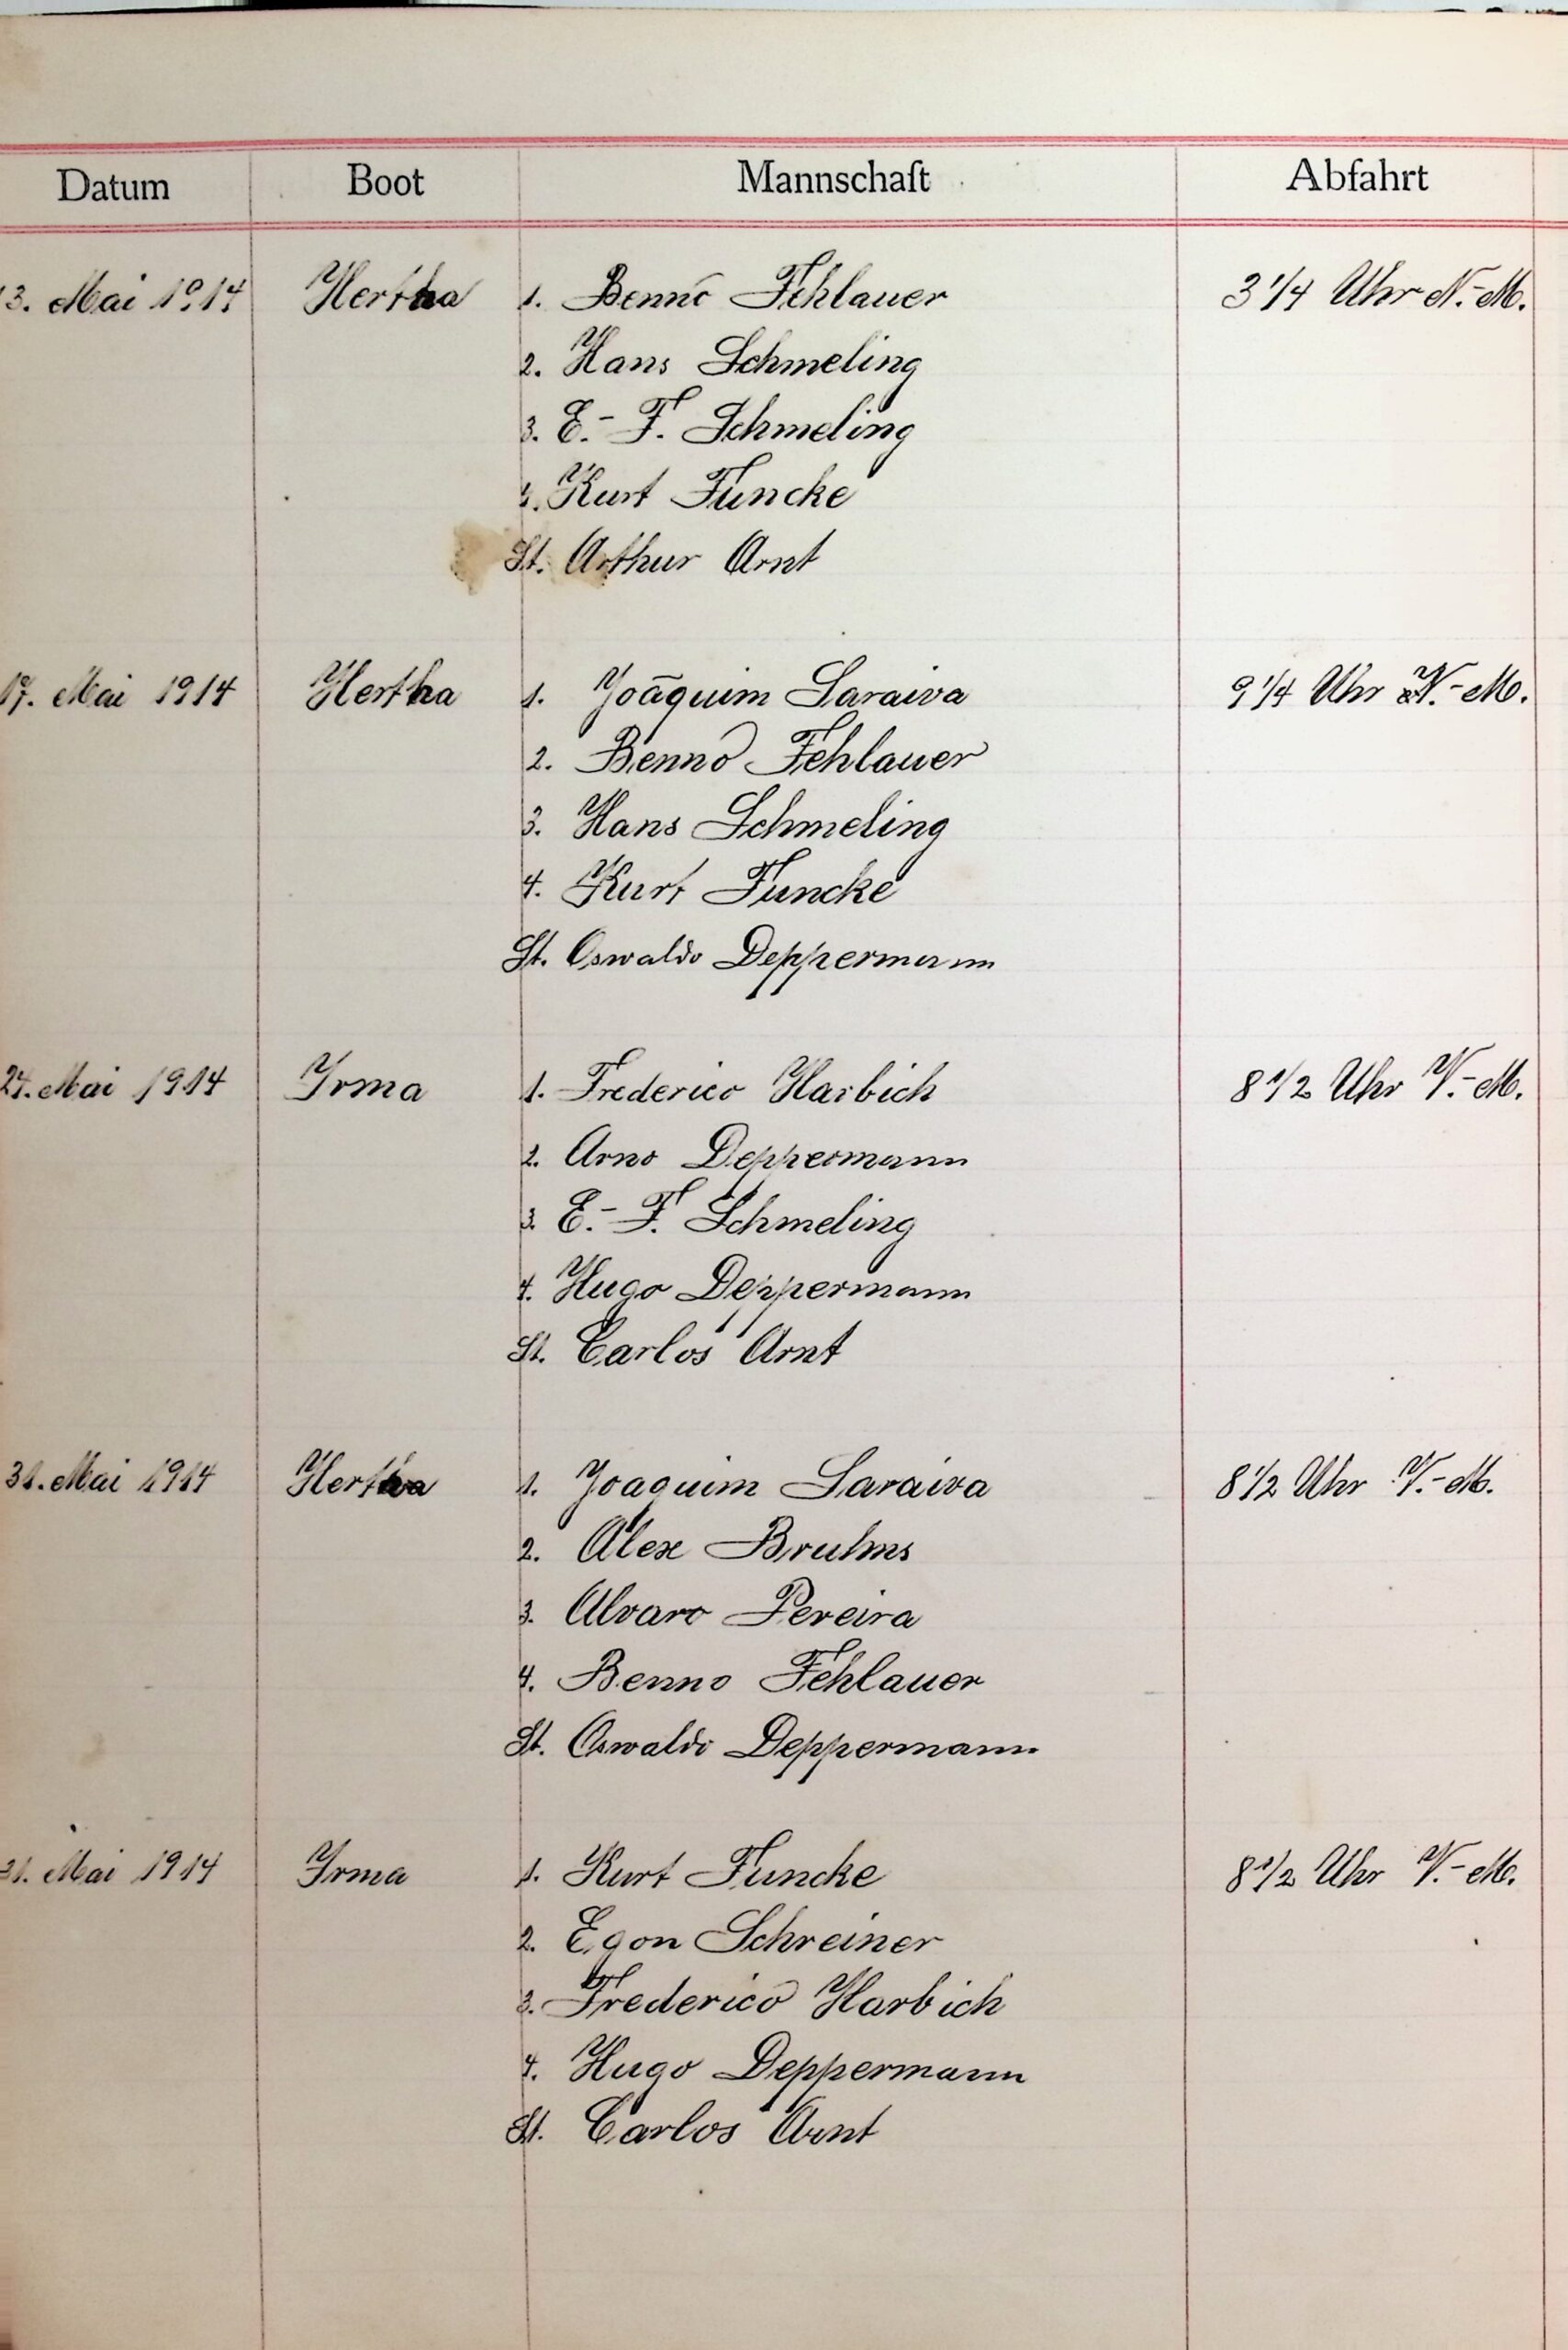 Datum Boot Mannschaft Abfahrt
13. Mai 1914 Hertha 1. Benno Fehlauer 3 1/4 Uhr N.-M.
2. Hans Schmeling
3. E.-F. Schmeling
4. Kurt Funcke
St. Arthur Arnt
17. Mai 1914 Hertha 1. Joãquim Saraiva 9 1/4 Uhr V.-M.
2. Benno Fehlauer
3. Hans Schmeling
4. Kurt Funcke
St. Oswaldo Deppermann
24. Mai 1914 Irma 1. Frederico Harbich 8 1/2 Uhr V.-M.
2. Arno Deppermann
3. E.-F. Schmeling
4. Hugo Deppermann
St. Carlos Arnt
31. Mai 1914 Hertha 1. Joaquim Saraiva 8 1/2 Uhr V.-M.
2. Alex Bruhms
3. Alvaro Pereira
4. Benno Fehlauer
St. Oswaldo Deppermann
31. Mai 1914 Irma 1. Kurt Funcke 8 1/2 Uhr V.-M.
2. Egon Schreiner
3. Frederico Harbich
4. Hugo Deppermann
St. Carlos Arnt